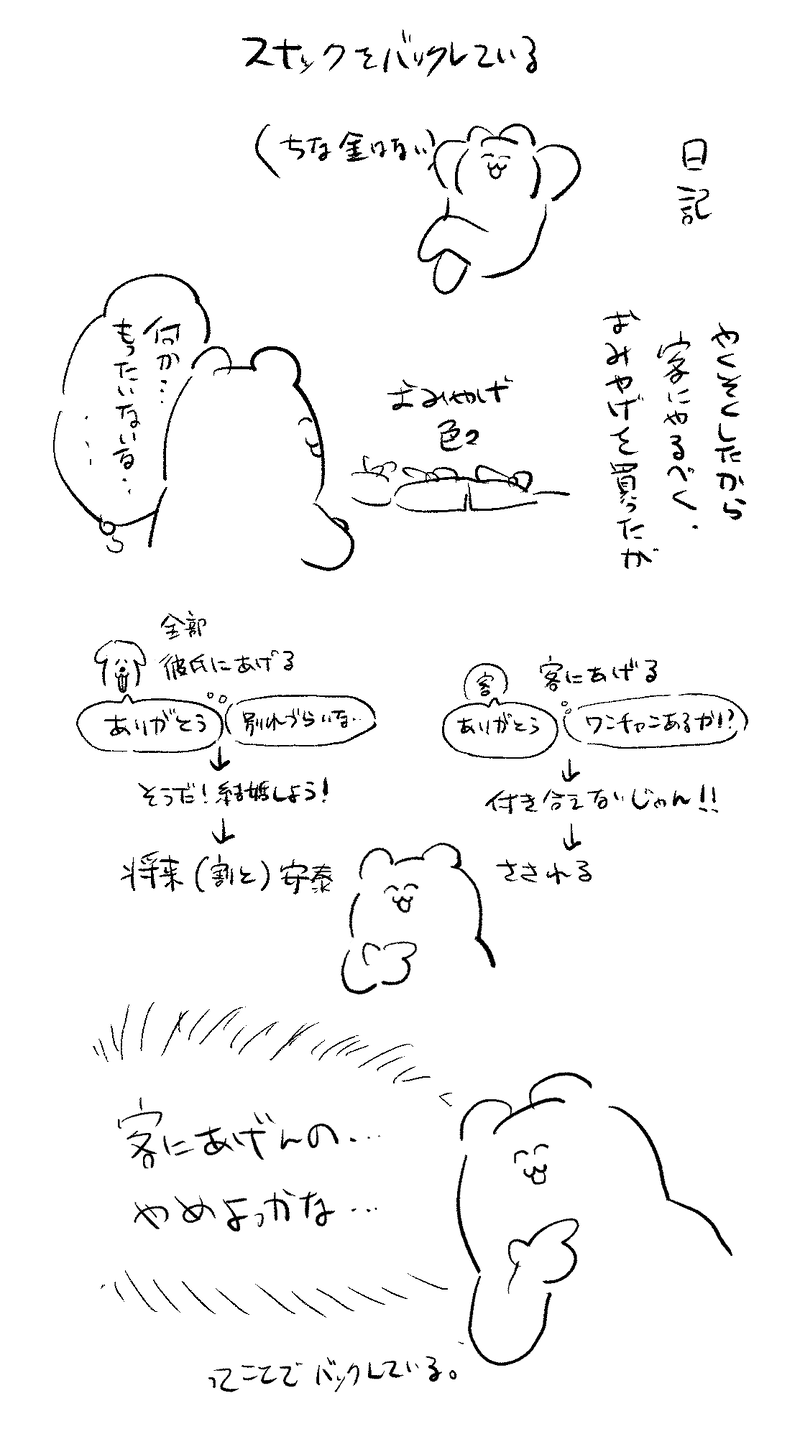 スナックをバックレている
日記
(ちな金はない)
やくそくしたから
客にやるべく、
おみやげを買ったが
おみやげ
色々
何か…
もったいないな…
全部
彼氏にあげる
ありがとう
別れづらいな…
そうだ!結婚しよう!
将来(割と)安泰
客にあげる
客
ありがとう
ワンチャンあるか!?
付き合えないじゃん!!
さされる
客にあげんの…
やめよっかな…
ってことでバックレている。